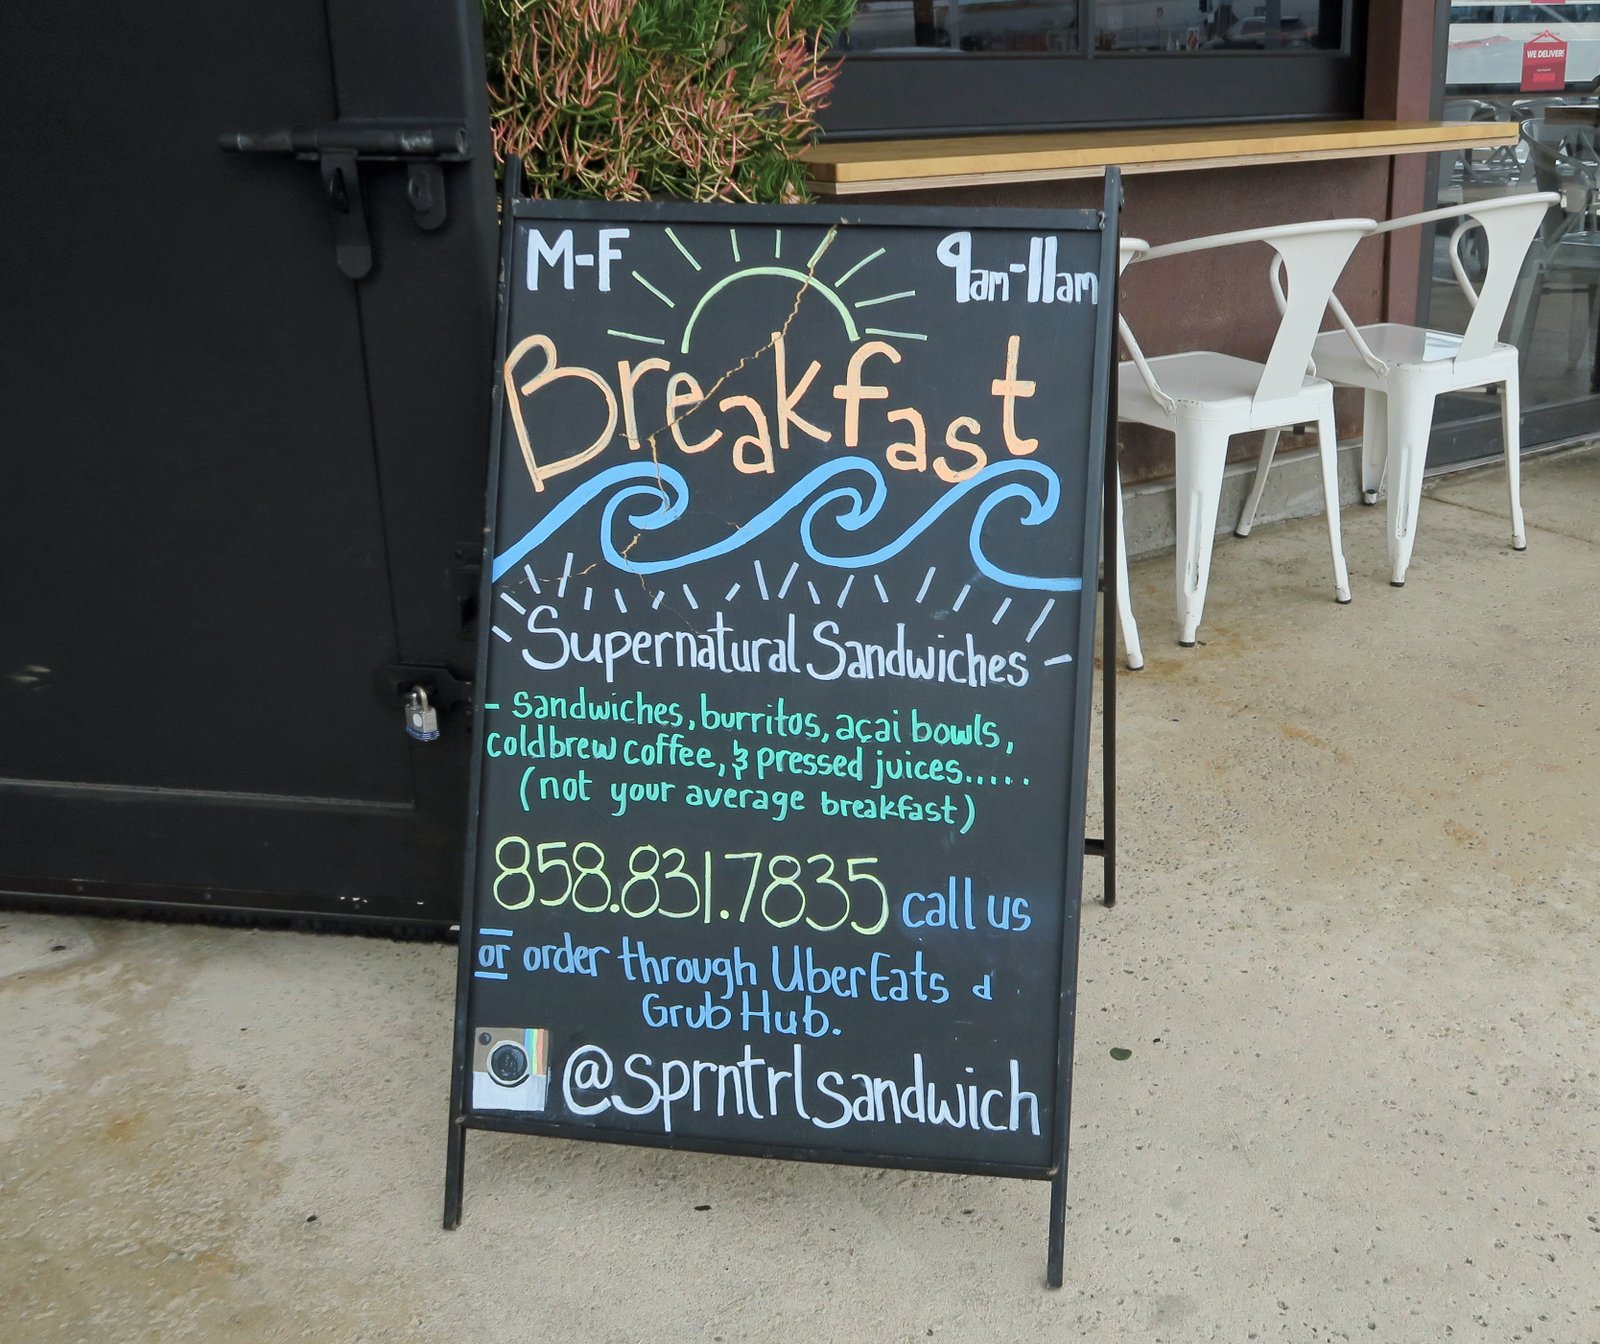 WE DELIVER!
M-F 9am-11am
Breakfast
Supernatural Sandwiches
- sandwiches, burritos, açai bowls,
coldbrew coffee, & pressed juices.....
(not your average breakfast)
858.831.7835 call us
or order through UberEats &
GrubHub.
@sprntrlsandwich